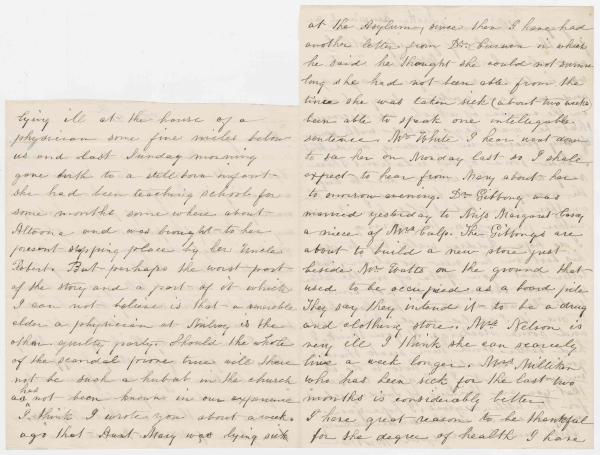 lying ill at the house of a
physician some five miles below
us and last Sunday morning
gave birth to a still born infant
she had been teaching school for
some months some where about
Altoona and was brought to her
present stopping place by her Uncle
Robert. But perhaps the worst part
of the story and a part of it which
I can not believe is that a venerable
elder a physician at Milroy is the
other guilty party. Should the whole
of the scandal prove true will there
not be such a hubub in the church
as has not been known in our experience
I think I wrote you about a week
ago that Aunt Mary was lying sick
at the Asylum, since then I have had
another letter from Dr. Curwen in which
he said he thought she could not survive
long she had not been able from the
time she was taken sick (about two weeks)
been able to speak one intelligable
sentence. Mr White I hear went down
to see her on Monday last so I shall
expect to hear from Mary about her
to morrow evening. Dr Gibbony was
married yesterday to Miss Margaret
a niece of Mrs Culp. The Gibbonys are
about to build a new store just
beside Mr Watts on the ground that
used to be occupied as a board pile
They say they intend it to be a drug
and clothing store. Mrs Nelson is
very ill I think she can scarcely
live a week longer. Mrs Milliken
who has been sick for the last two
months is considerably better
I have great reason to be thankful
for the degree of health I have